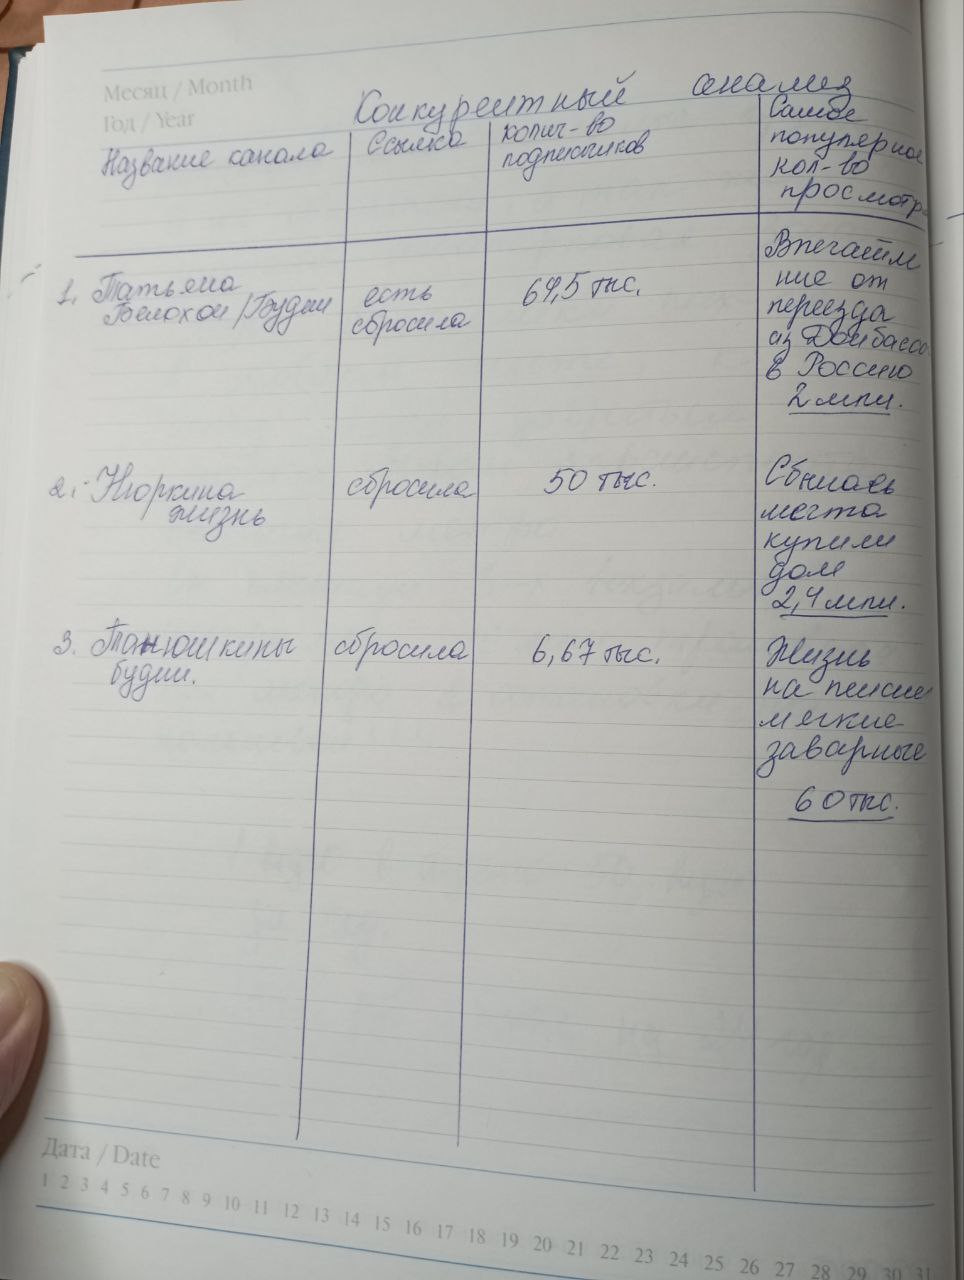 Месяц / Month
Год / Year
Конкурентный анализ
Название канала
Ссылка
колич-во
подписчиков
Самое
популярное
кол-во
просмотр
1. Татьяна
/Будни
есть
сбросила
тыс.
Впечатлн
ние от
переезда
из Донбасса
в Россию
2 млн.
2. Нюркина
жизнь
сбросила
50 тыс.
Сбылась
мечта
купили
дом
2,4 млн.
3. Танюшкины
будни.
сбросила
6,67 тыс.
Жизнь
на пенсии
мягкие
заварные
60 тыс.
Дата / Date
1 2 3 4 5 6 7 8 9 10 11 12 13 14 15 16 17 18 19 20 21 22 23 24 25 26 27 28 29 30 31